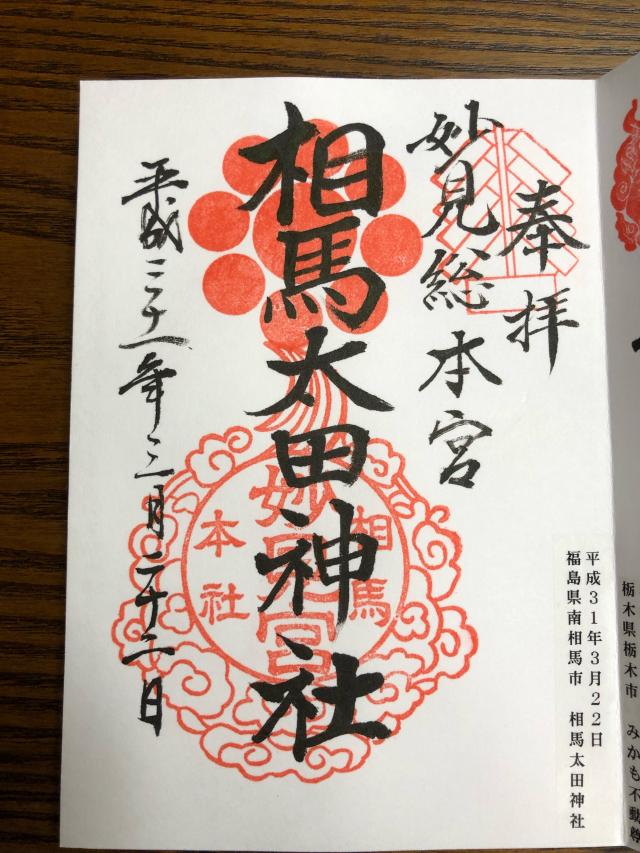 奉拝
妙見総本宮
相馬太田神社
平成三十一年三月二十二日
相馬
妙見宮
本社
平成31年3月22日
福島県南相馬市 相馬太田神社
栃木県栃木市 みかも不動尊